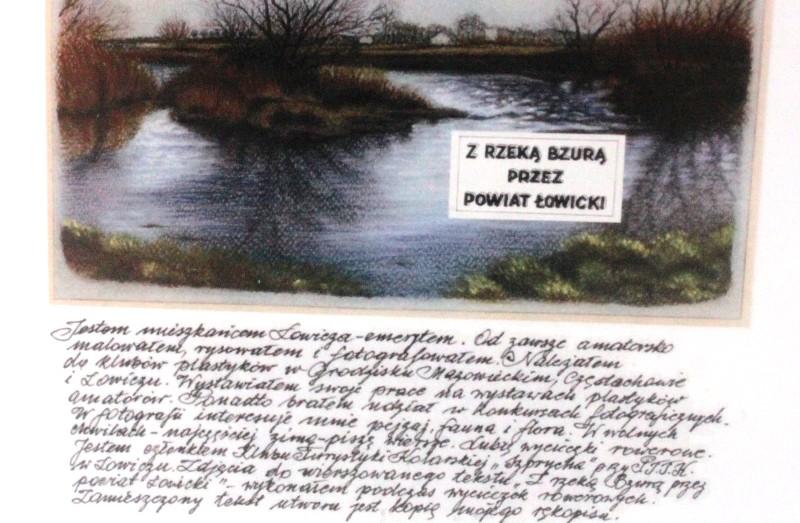 Z RZEKĄ BZURĄ
PRZEZ
POWIAT ŁOWICKI
Jestem mieszkańcem Łowicza - emerytem. Od zawsze amatorsko
malowałem, rysowałem i fotografowałem. Należałem
do klubów plastyków w Grodzisku Mazowieckim, Częstochowie
i Łowiczu. Wystawiałem swoje prace na wystawach plastyków
amatorów. Ponadto brałem udział w konkursach fotograficznych.
W fotografii interesuje mnie pejzaż, fauna i flora. W wolnych
chwilach - najczęściej zimą - piszę wiersze. Lubię wycieczki rowerowe.
Jestem członkiem Klubu Turystyki Kolarskiej „Szprycha" przy P.T.T.K.
w Łowiczu. Zdjęcia do wierszowanego tekstu „Z rzeką Bzurą przez
powiat Łowicki" - wykonałem podczas wycieczek rowerowych.
Zamieszczony tekst utworu jest kopią mojego rękopisu.